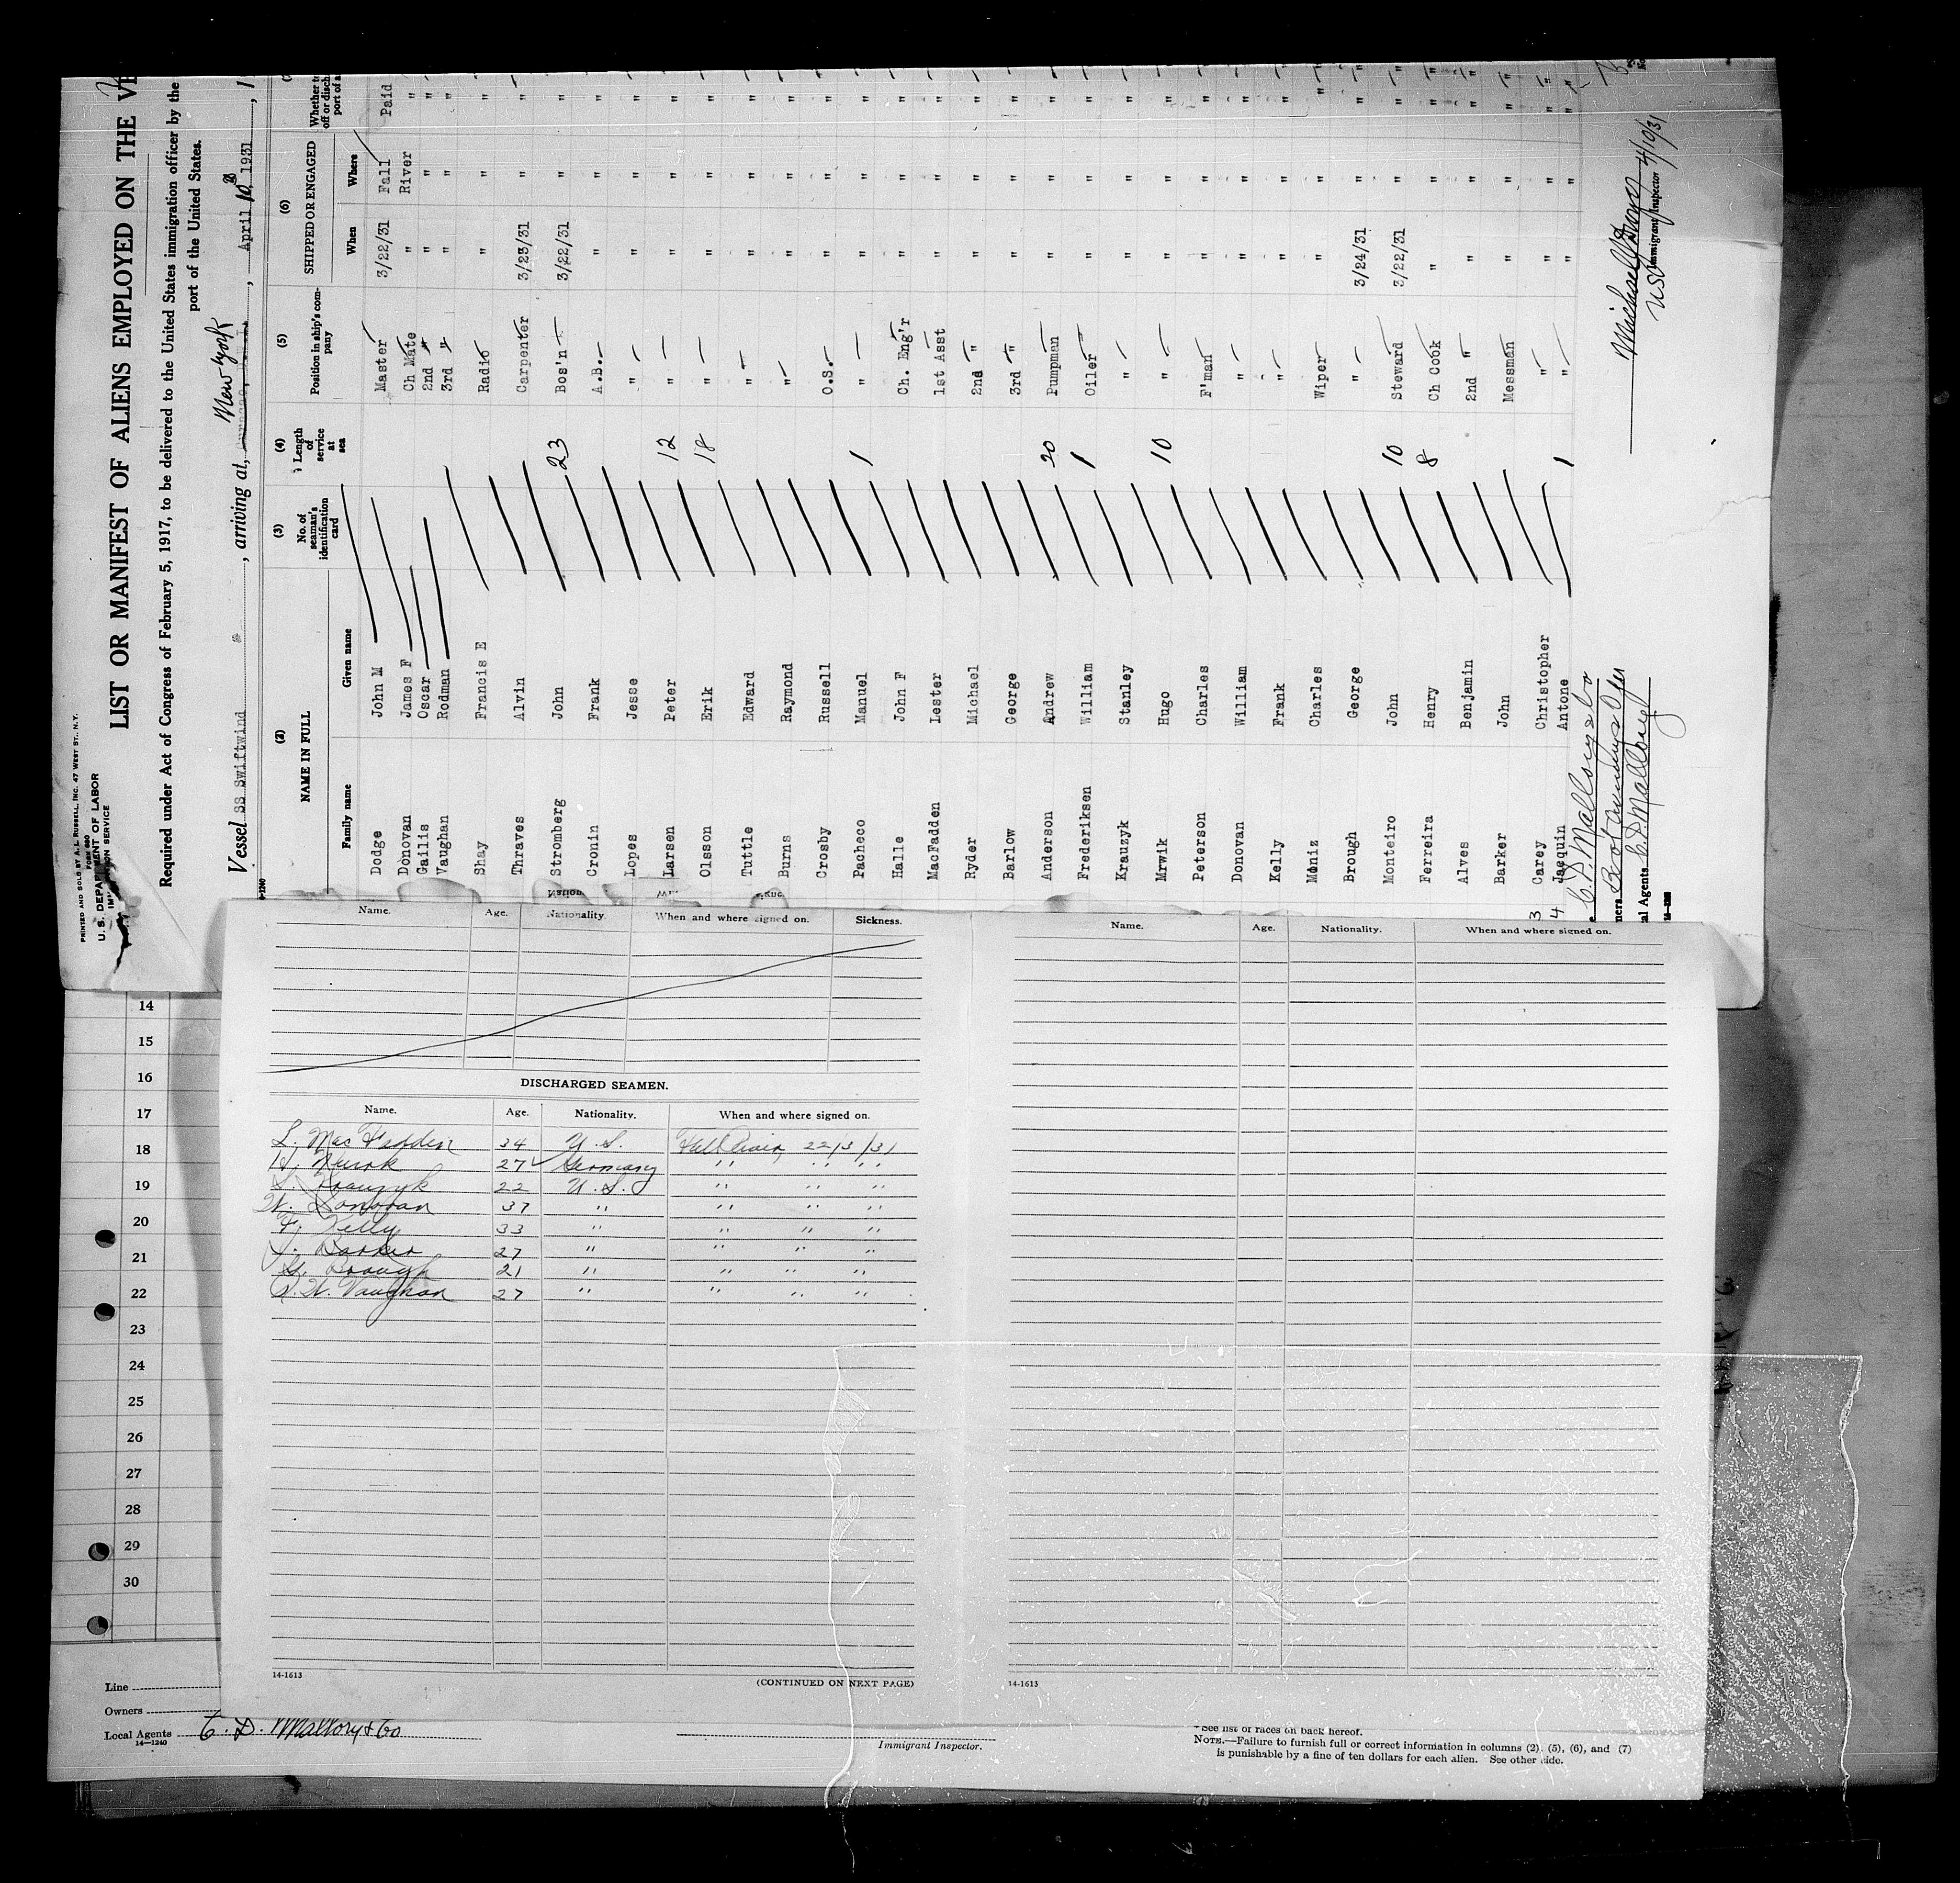 PRINTED AND SOLD BY A. L. RUSSELL, INC. 47 WEST ST., N. Y.
FORM 680
U. S. DEPARTMENT OF LABOR
IMMIGRATION SERVICE
LIST OR MANIFEST OF ALIENS EMPLOYED ON THE VE
Required under Act of Congress of February 5, 1917, to be delivered to the United States immigration officer by the
port of the United States.
Vessel SS Swiftwind , arriving at, New York , April 10 1931 , 1
(2) (3) (4) (5) (6)
NAME IN FULL No. of seaman's identification card Length of service at sea Position in ship's company SHIPPED OR ENGAGED Whether to
off or disch
port of a
Family name Given name When Where
Dodge John M Master 3/22/31 Fall Paid
Donovan James F Ch Mate " River "
Gallis Oscar 2nd " " " "
Vaughan Rodman 3rd " " " "
Shay Francis E Radio " " "
Thraves Alvin Carpenter 3/23/31 " "
Stromberg John 23 Bos'n 3/22/31 " "
Cronin Frank A.B. " " "
Lopes Jesse " " " "
Larsen Peter 12 " " " "
Olsson Erik 18 " " " "
Tuttle Edward " " " "
Burns Raymond " " " "
Crosby Russell O.S. " " "
Pacheco Manuel 1 " " " "
Halle John F Ch. Eng'r " " "
MacFadden Lester 1st Asst " " "
Ryder Michael 2nd " " " "
Barlow George 3rd " " " "
Anderson Andrew 20 Pumpman " " "
Frederiksen William 1 Oiler " " "
Krauzyk Stanley " " " "
Mrwik Hugo 10 " " " "
Peterson Charles F'man " " "
Donovan William " " " "
Kelly Frank " " " "
Moniz Charles Wiper " " "
Brough George " 3/24/31 " "
Monteiro John 10 Steward 3/22/31 " "
Ferreira Henry 8 Ch Cook " " "
Alves Benjamin 2nd " " " "
Barker John Messman " " "
3 Carey Christopher " " " "
4 Jaequin Antone 1 " " " "
C. D. Mallory & Co
ners
al Agents C. D. Mallory
Immigrant Inspector 4/10/31
Name. Age. Nationality. When and where signed on. Sickness.
DISCHARGED SEAMEN.
Name. Age. Nationality. When and where signed on.
L. MacFadden 34 U. S. Fall River 22/3/31
H. 27 Germany " " "
S. Krauzyk 22 U. S. " " "
W. Donovan 37 " " " "
F. Kelly 33 " " " "
J. Barker 27 " " " "
G. Brough 21 " " " "
R. W. Vaughan 27 " " " "
14-1613
(CONTINUED ON NEXT PAGE)
Name. Age. Nationality. When and where signed on.
14-1613
14
15
16
17
18
19
20
21
22
23
24
25
26
27
28
29
30
Line
Owners
Local Agents C. D. Mallory & Co
14-1240
Immigrant Inspector.
* See list of races on back hereof.
NOTE.—Failure to furnish full or correct information in columns (2), (5), (6), and (7)
is punishable by a fine of ten dollars for each alien. See other side.